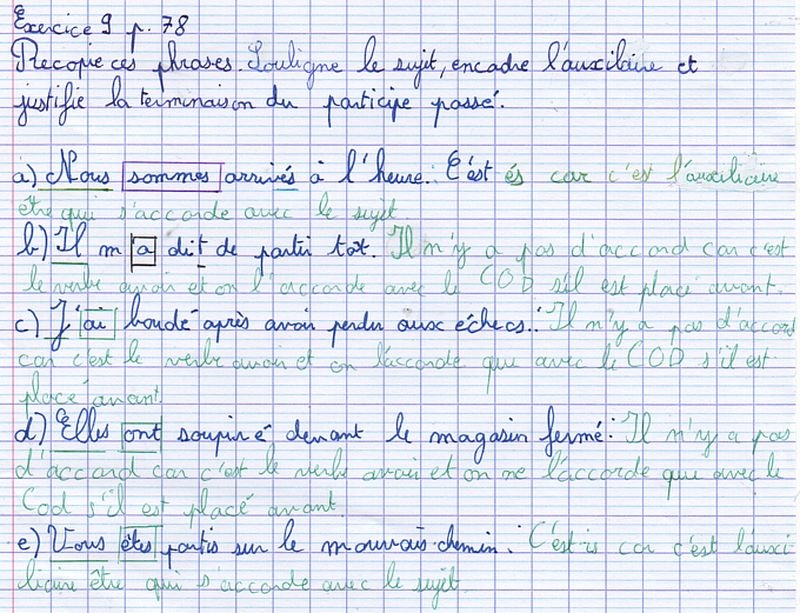 Exercice 9 p. 78
Recopie ces phrases. Souligne le sujet, encadre l'auxiliaire et
justifie la terminaison du participe passé.
a) Nous sommes arrivés à l'heure. : C'est és car c'est l'auxiliciaire
être qui s'accorde avec le sujet.
b) Il m'a dit de partir tôt. Il n'y a pas d'accord car c'est
le verbe avoir et on l'accorde avec le COD s'il est placé avant.
c) J'ai boudé après avoir perdu aux échecs. : Il n'y a pas d'accord
car c'est le verbe avoir et on l'accorde que avec le COD s'il est
placé avant.
d) Elles ont soupiré devant le magasin fermé : Il n'y a pas
d'accord car c'est le verbe avoir et on ne l'accorde que avec le
Cod s'il est placé avant.
e) Vous êtes partis sur le mauvais chemin. : C'est is car c'est l'auxi
liciaire être qui s'accorde avec le sujet.